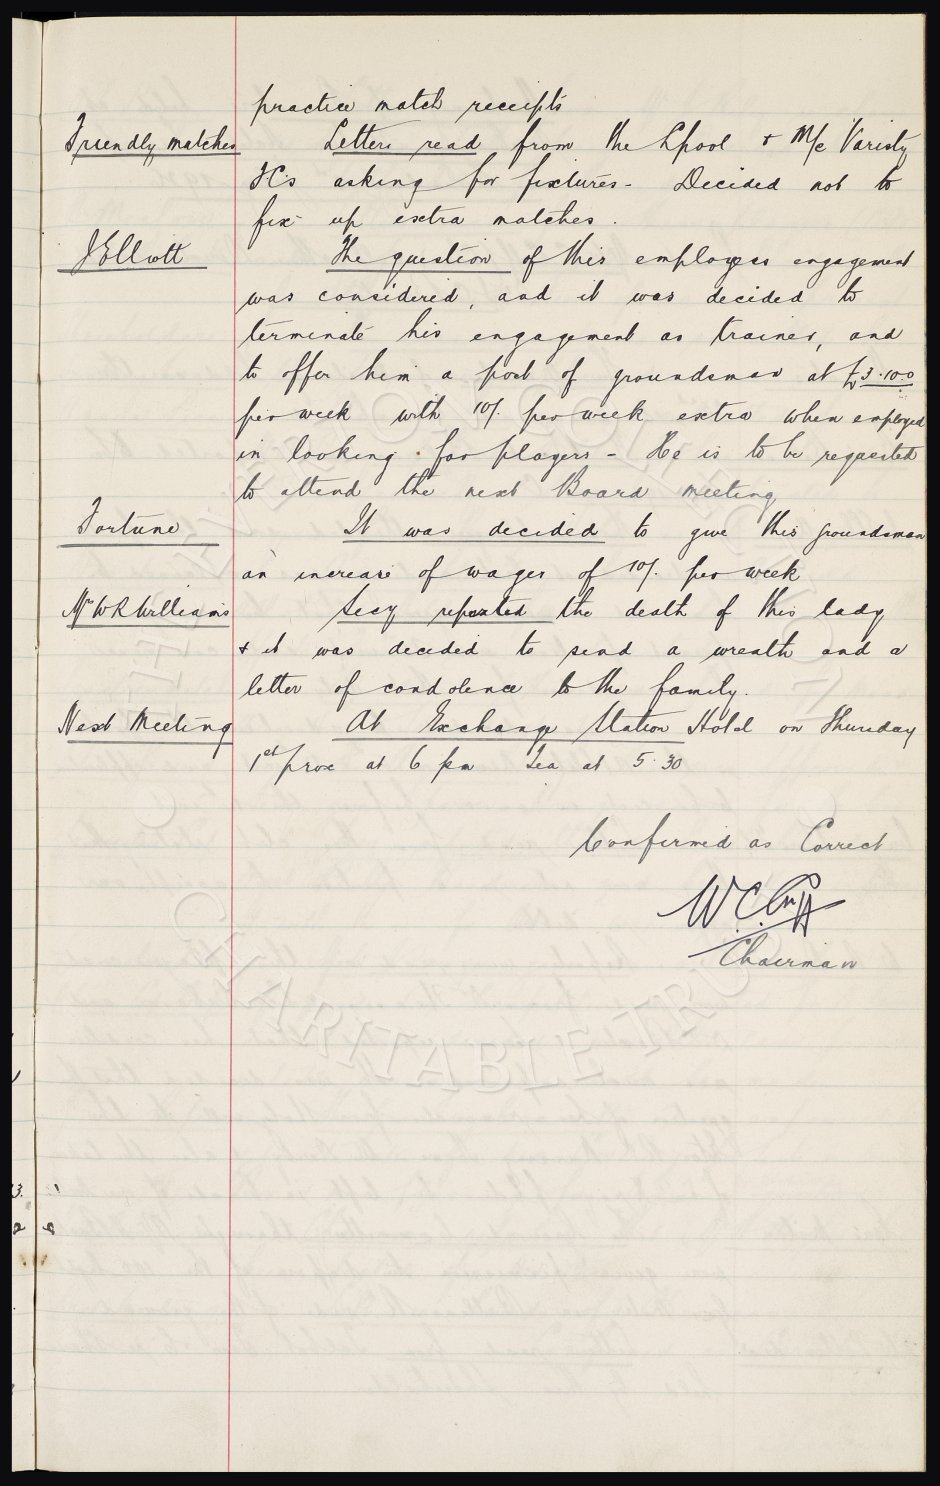 practice match receipts
Friendly matches Letters read from the Lpool & M/c Varisty
FCs asking for fixtures - Decided not to
fix up extra matches.
J Elliott The question of this employees engagement
was considered, and it was decided to
terminate his engagement as trainer, and
to offer him a post of groundsman at £3.10.0
per week with 10/. per week extra when employed
in looking for players - He is to be requested
to attend the next Board meeting
Fortune It was decided to give this groundsman
an increase of wages of 10/. per week
Mrs W R Williams Secy reported the death of this lady
& it was decided to send a wreath and a
letter of condolence to the family.
Next Meeting At Exchange Station Hotel on Thursday
1st prox at 6 pm Tea at 5.30
Confirmed as Correct
W.C. Cuff
Chairman
CHARITABLE TRUST